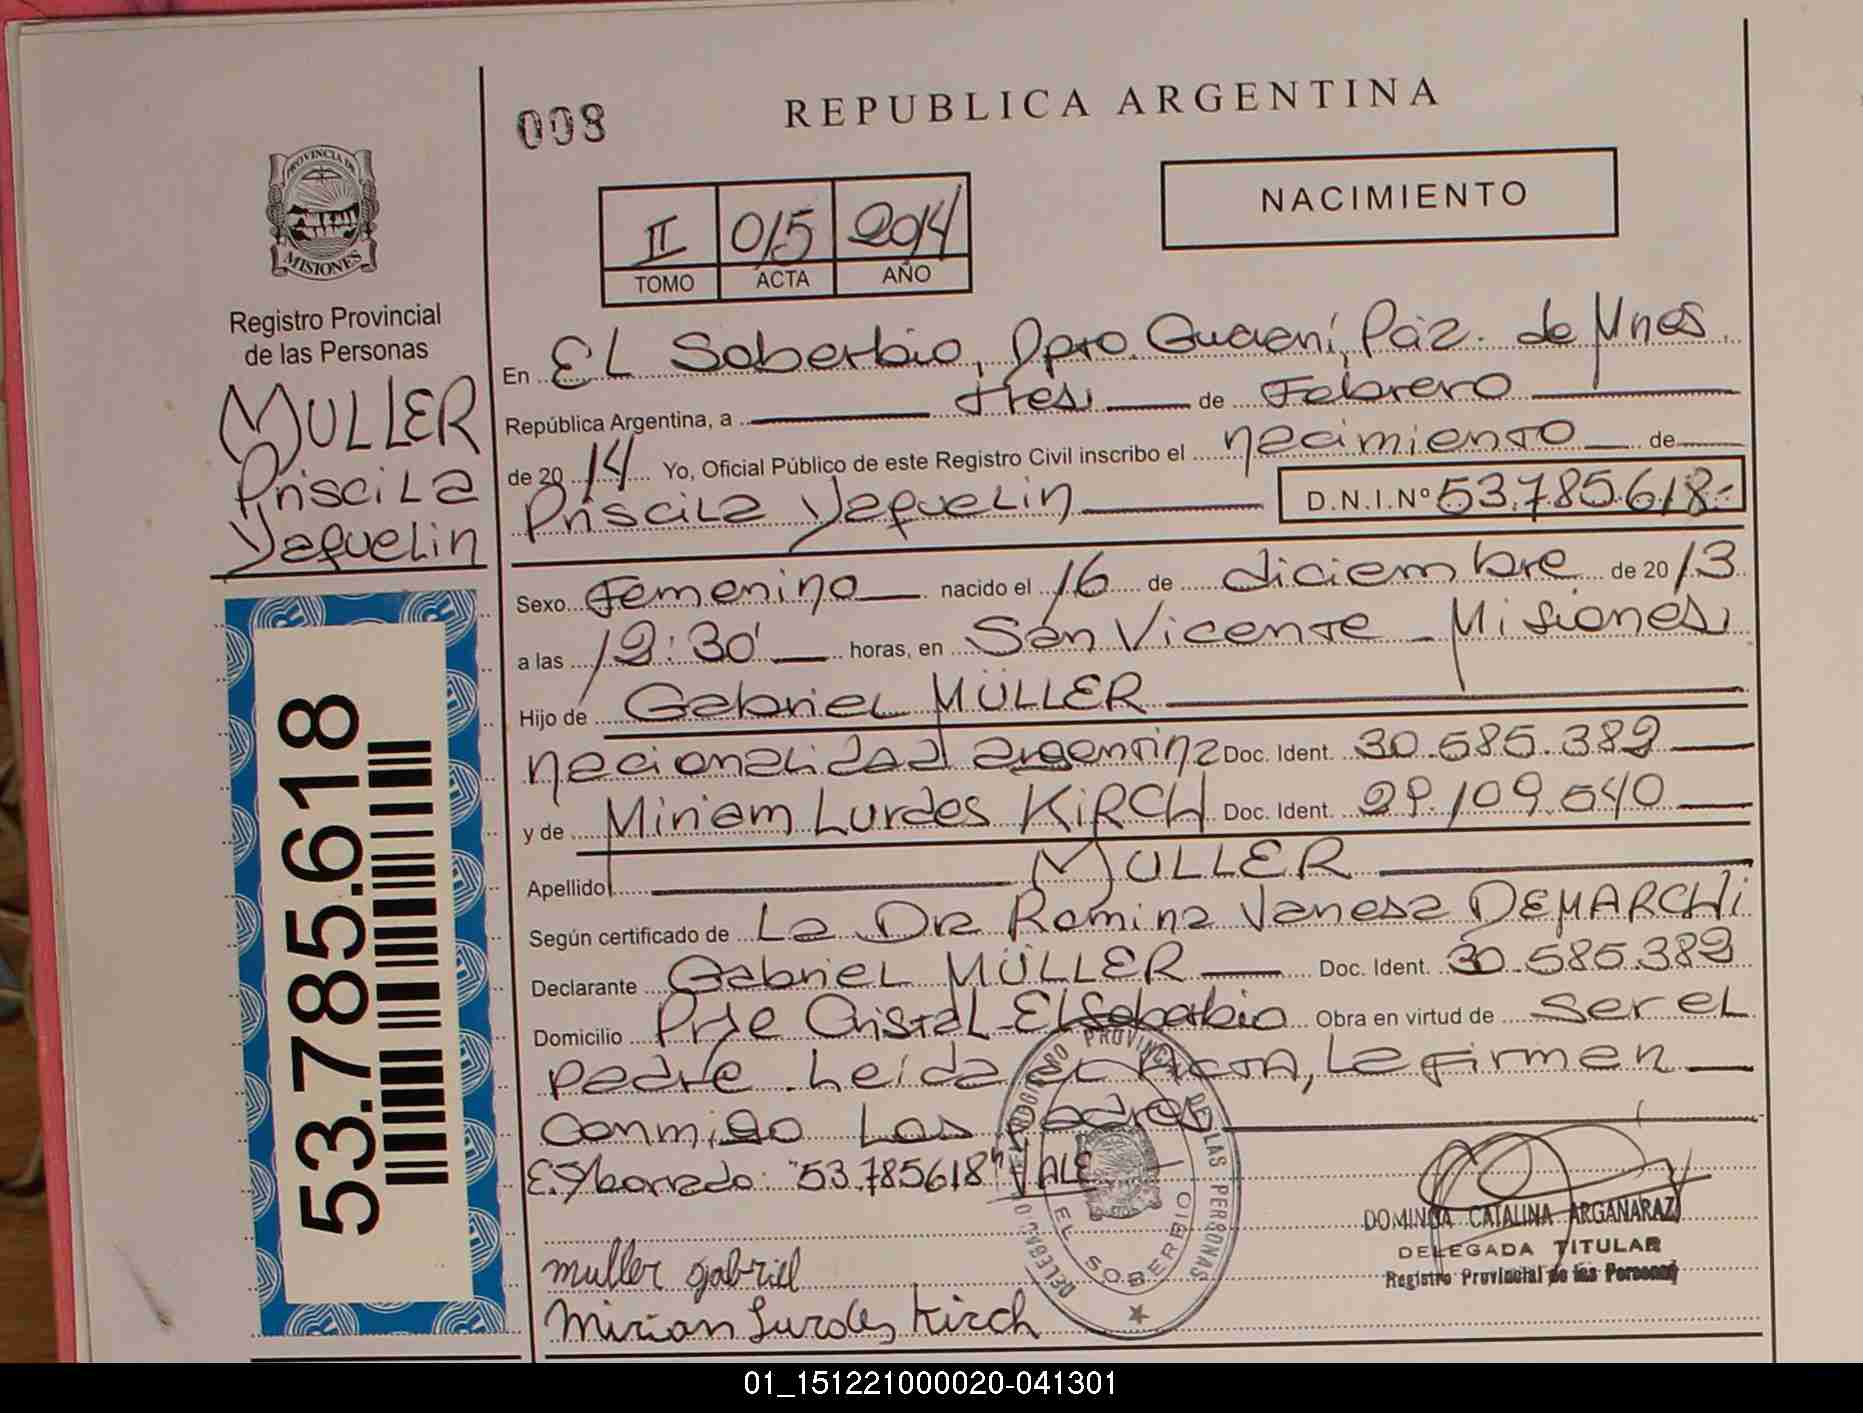 008
REPUBLICA ARGENTINA
NACIMIENTO
II 015 2014
TOMO ACTA AÑO
PROVINCIA DE
MISIONES
Registro Provincial
de las Personas
MULLER
Priscila
Yaquelin
53.785.618
En EL Soberbio, Dpto. Guaraní, Pcia. de Mnes
República Argentina, a tres de Febrero
de 2014 Yo, Oficial Público de este Registro Civil inscribo el nacimiento de
Priscila Yaquelin D.N.I.Nº 53.785.618.-
Sexo Femenino nacido el 16 de diciembre de 2013
a las 12:30' horas, en San Vicente - Misiones
Hijo de Gabriel MÜLLER
nacionalidad argentina Doc. Ident. 30.585.382
y de Miriam Lurdes KIRCH Doc. Ident. 29.109.540
Apellido MULLER
Según certificado de La Dra Romina Vanesa DEMARCHI
Declarante Gabriel MÜLLER Doc. Ident. 30.585.382
Domicilio Pje Cristal - El Soberbio Obra en virtud de ser el
padre. Leída el Acta, la firman
conmigo los padres
E/borrado: "53.785618" VALE
REGISTRO PROVINCIAL DE LAS PERSONAS
EL SOBERBIO
DOMINGA CATALINA ARGANARAZ
DELEGADA TITULAR
Registro Provincial de las Personas
muller gabriel
Mirian Lurdes Kirch
01_151221000020-041301